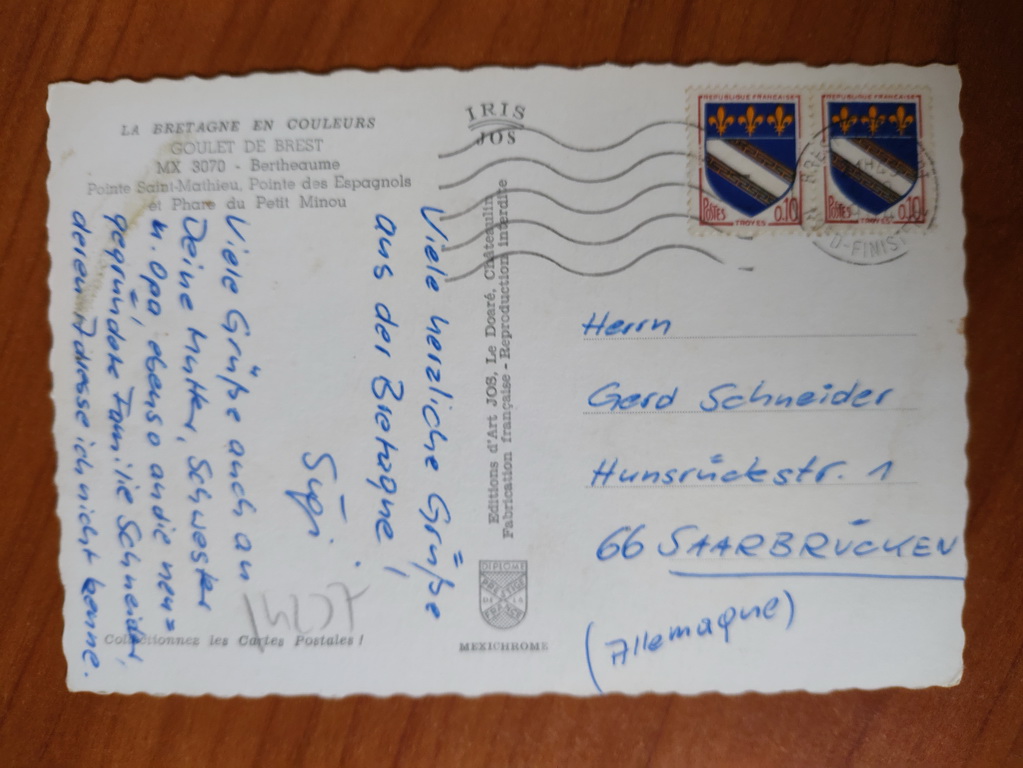 LA BRETAGNE EN COULEURS
GOULET DE BREST
MX 3070 - Bertheaume
Pointe Saint-Mathieu, Pointe des Espagnols
et Phare du Petit Minou
IRIS
JOS
REPUBLIQUE FRANCAISE
POSTES
0,10
TROYES
REPUBLIQUE FRANCAISE
POSTES
0,10
TROYES
Viele herzliche Grüße
aus der Bretagne,
Sigi.
Viele Grüße auch an
Deine Mutter, Schwester
u. Opa, ebenso an die neu=
gegründete Familie Schneider,
deren Adresse ich nicht kenne.
Editions d'Art JOS, Le Doaré, Châteaulin
Fabrication française - Reproduction interdite
DIPLOME
PRESTIGE
FRANCE
MEXICHROME
Collectionnez les Cartes Postales !
Herrn
Gerd Schneider
Hunsrückstr. 1
66 SAARBRÜCKEN
(Allemagne)